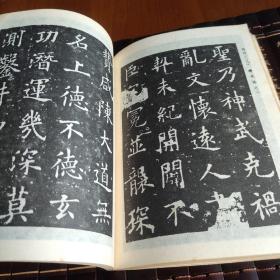 聖乃神武克禍
亂文懷遠人
契未紀開闢不
臣冕並襲琛
贄咸陳大道無
名上德不德玄
功潛運幾深莫
測鑿井